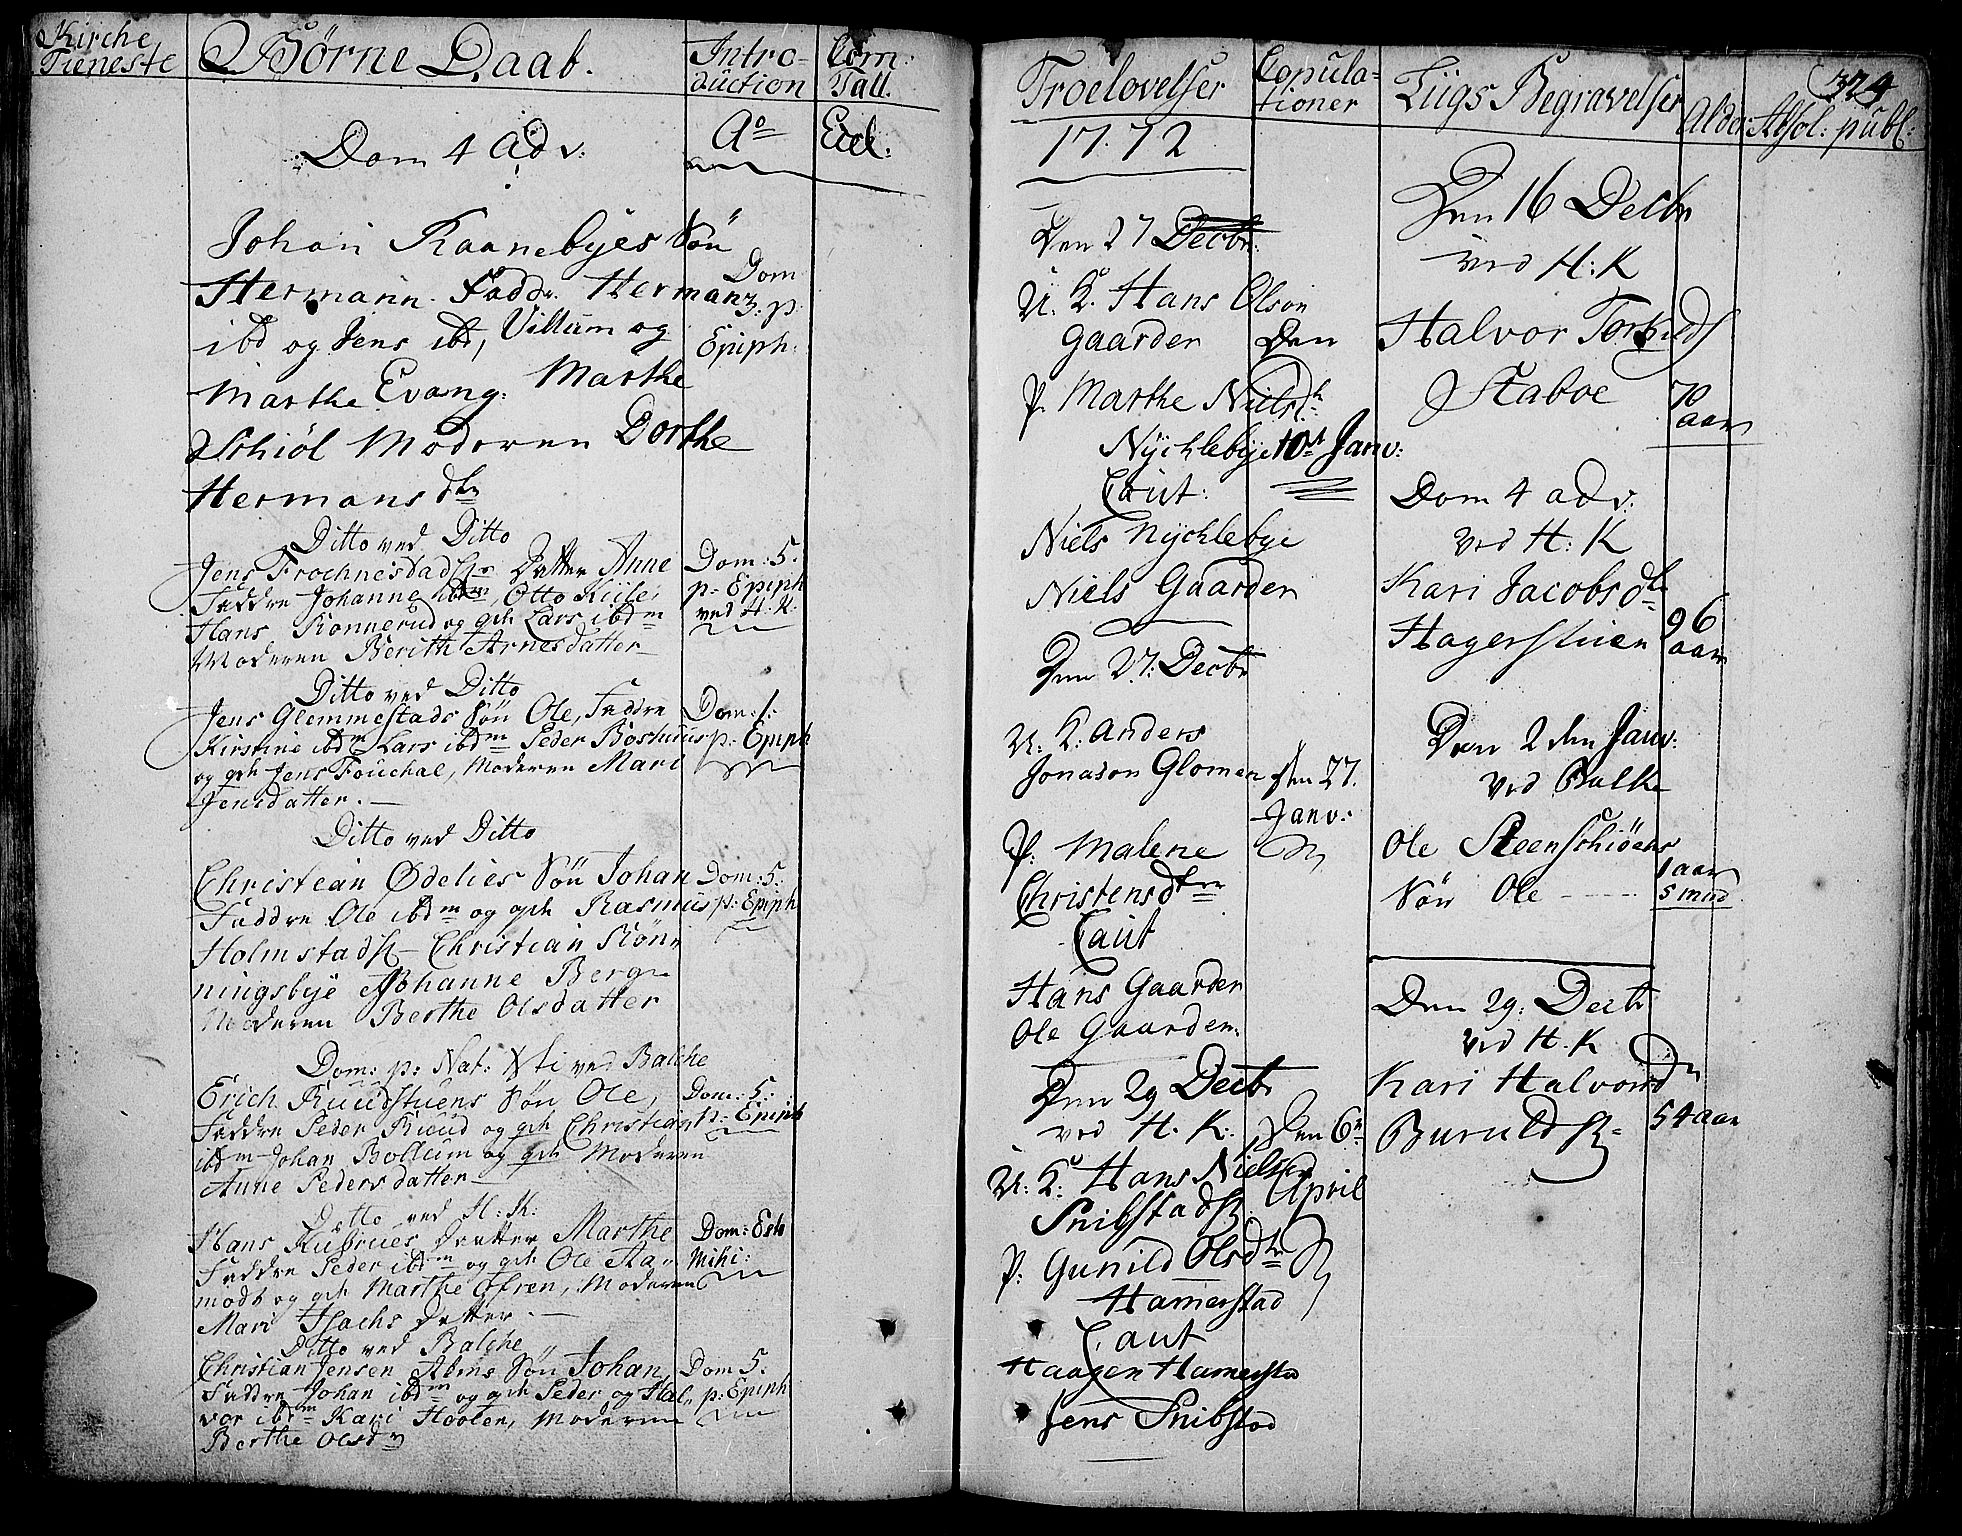 Kirche
Tieneste
Børne Daab.
Intro-
duction
Com:
Tall.
Dom 4 Adv:
Ao
Eccl:
Johan Raanebyes Søn
Hermann. Fadd. Herman
ibd og Jens ibd, Villum og
Marthe Evang: Marthe
Schiøl Moderen Dorthe
Hermansdtr
Dom
3. p.
Epiph:
Ditto ved Ditto
Jens Frochnestads Datter Anne
Faddre Johanne ibdm, Otto Kiile,
Hans Konnerud og gch Lars ibdm
Moderen Berith Arnesdatter
Dom: 5.
p. Epiph
ved H. K.
Ditto ved Ditto
Jens Glemmestads Søn Ole, Faddre
Kirstine ibdm Lars ibdm Peder
og gch Jens Fouchal, Moderen Mari
Jensdatter.
Dom: 1.
p: Epiph
Ditto ved Ditto
Christian Ødelies Søn Johan
Faddre Ole ibdm og gch Rasmus
Holmstads Christian Røn-
ningsbye Johanne Berg
Moderen Berthe Olsdatter
Dom: 5.
p: Epiph
Dom: p: Nat: Xti ved Balche
Erich Ruudstuens Søn Ole,
Faddre Peder Ruud og gch Christian
ibdm Johan Bollum og gch Moderen
Anne Pedersdatter
Dom: 5.
p: Epiph
Ditto ved H. K.
Hans Datter Marthe
Faddre Peder ibdm og gch Ole Aa-
modt og gch Marthe Øfren, Moderen
Mari Isachs Datter
Dom: Esto
Mihi:
Ditto ved Balche
Christian Jensen Alms Søn Johan,
Faddre Johan ibdm og gch Peder og Hal-
vor ibdm Kari Hoolen, Moderen
Berthe Olsd
Dom 5.
p: Epiph
Troelovelser
Copula-
tioner
Liigs Begravelser
Alder
Absol: publ:
374
1772
Den 27 Decbr:
U. K. Hans Olson
Gaarden
P. Marthe Nielsd
Nychlebye
Caut:
Niels Nychlebye
Niels Gaarden
Den
10de Janv:
Den 27: Decbr
U: K: Anders
Jonason Glomen
P: Malene
Christensdtr
Caut
Hans Gaarden
Ole Gaarden.
Den 27.
Janv:
Den 29 Decbr
ved H. K:
U: K: Hans Nielsen
Snibstads
P: Gunild Olsdtr
Hamerstad
Caut
Haagen Hamerstad
Jens Snibstad
Den 6te
April
Den 16 Decbr
ved H: K
Halvor
Staboe
70
aar
Dom 4 adv:
ved H: K
Kari Jacobsdtr
Hagerstuen
96
aar
Den 2den Janv:
ved Balke
Ole Steenschiøens
Søn Ole
1 aar
5 mnd
Den 29: Decbr
ved H. K
Kari Halvorsd
54 aar